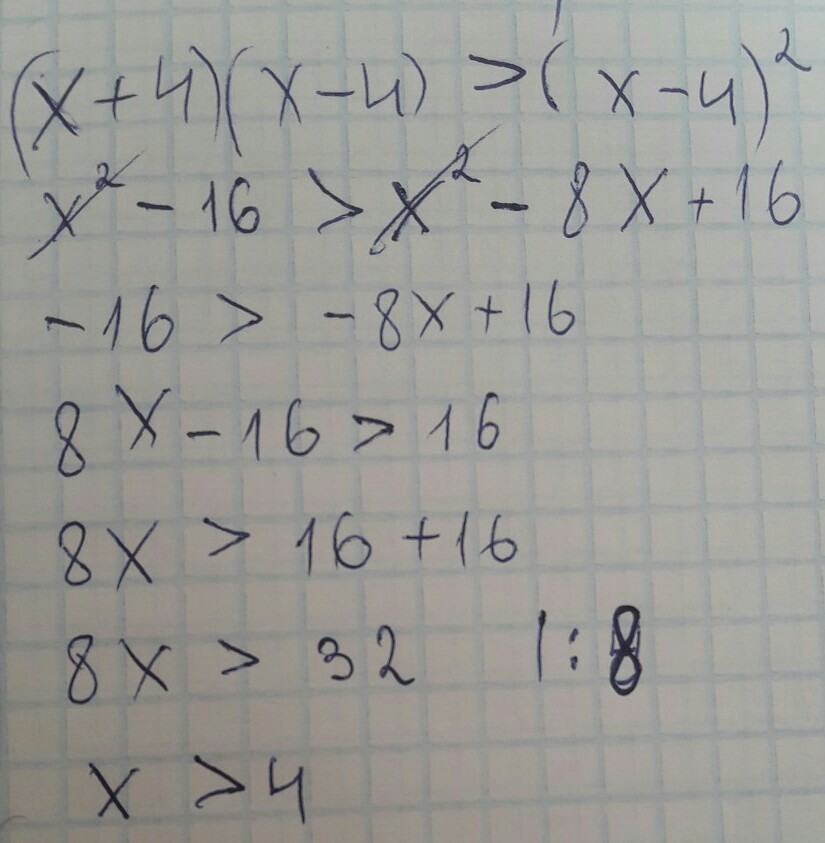 (x+4)(x-4) > (x-4)²
x² - 16 > x² - 8x + 16
-16 > -8x + 16
8x - 16 > 16
8x > 16 + 16
8x > 32 |: 8
x > 4